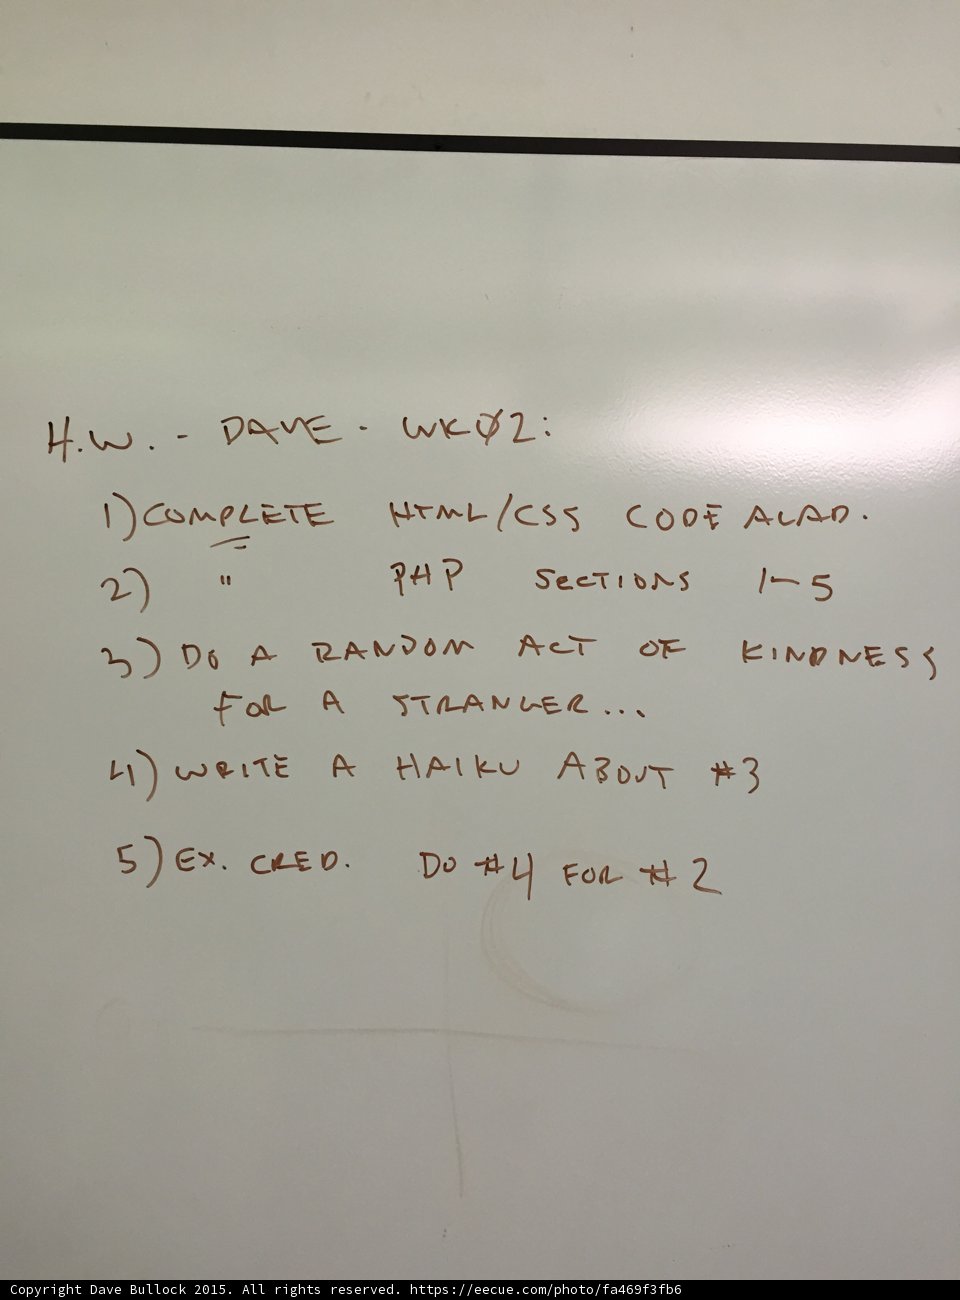 H.W. - DAVE - WKØ2:
1) COMPLETE HTML/CSS CODE ACAD.
2) " PHP SECTIONS 1-5
3) DO A RANDOM ACT OF KINDNESS
FOR A STRANGER...
4) WRITE A HAIKU ABOUT #3
5) EX. CRED. DO #4 FOR #2
Copyright Dave Bullock 2015. All rights reserved. https://eecue.com/photo/fa469f3fb6